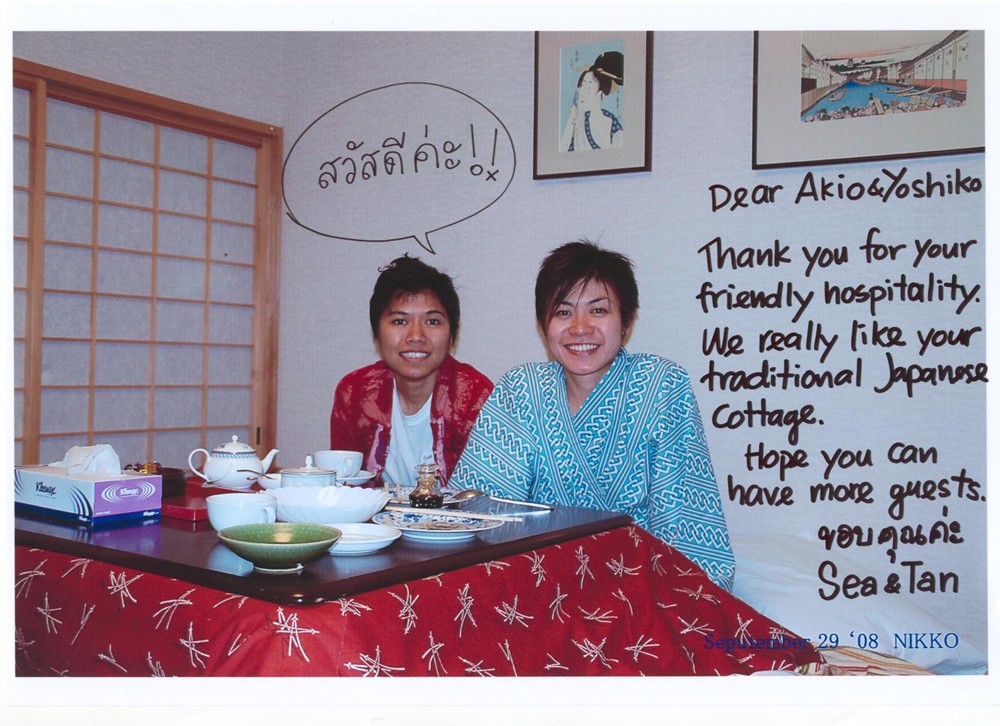 สวัสดีค่ะ!!
Dear Akio & Yoshiko
Thank you for your
friendly hospitality.
We really like your
traditional Japanese
Cottage.
Hope you can
have more guests.
ขอบคุณค่ะ
Sea & Tan
Kleenex
Kleenex
Seputember 29 '08 NIKKO